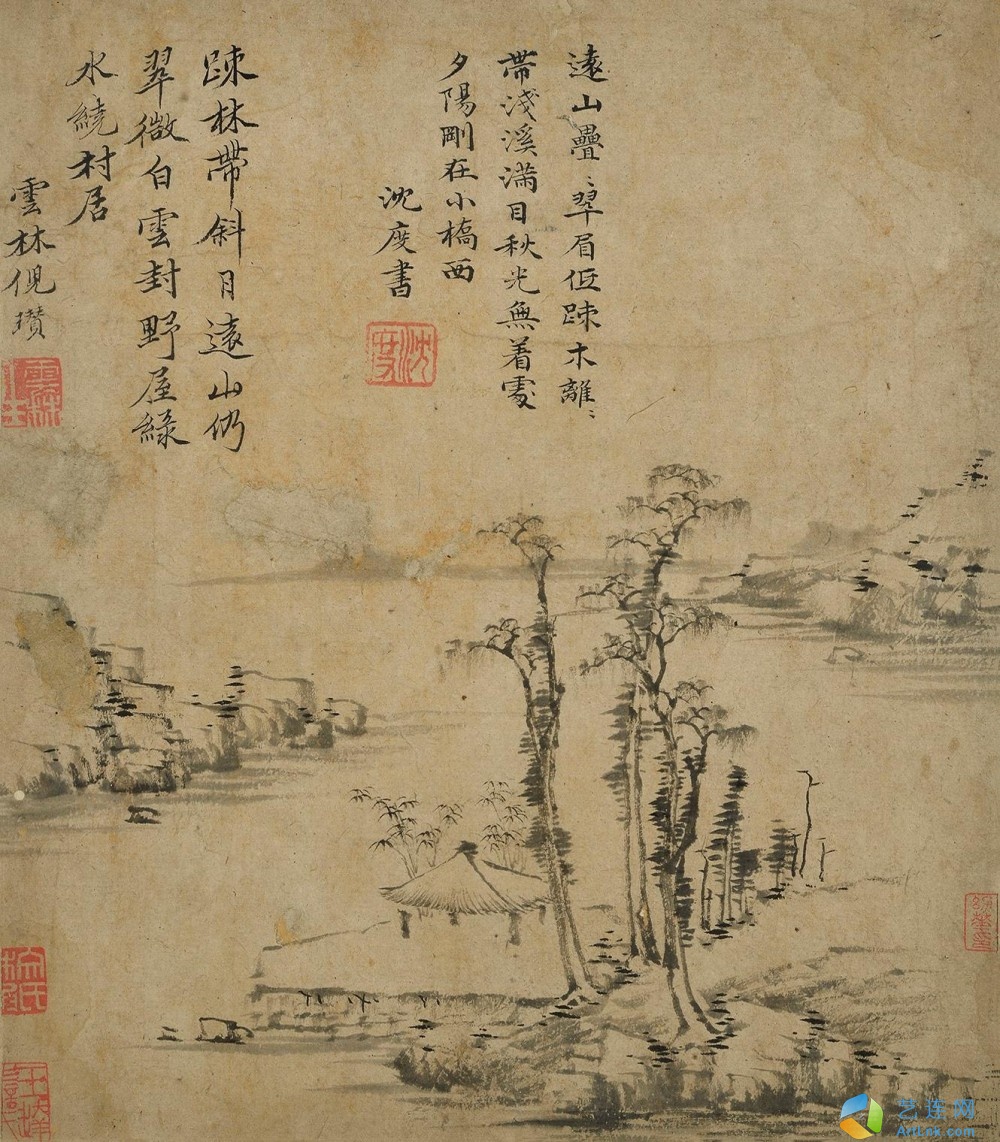 遠山疊〻翠眉低疎木離〻
帶淺溪滿目秋光無着處
夕陽剛在小橋西
沈度書
沈度
疎林帶斜月遠山仍
翠微白雲封野屋綠
水繞村居
雲林倪瓚
艺连网
ArtLnk.com